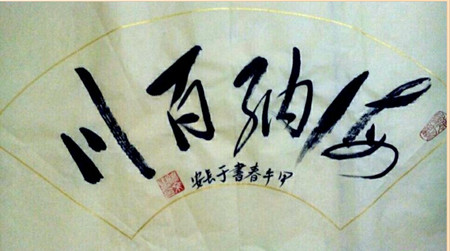 海纳百川
甲午春書于長安